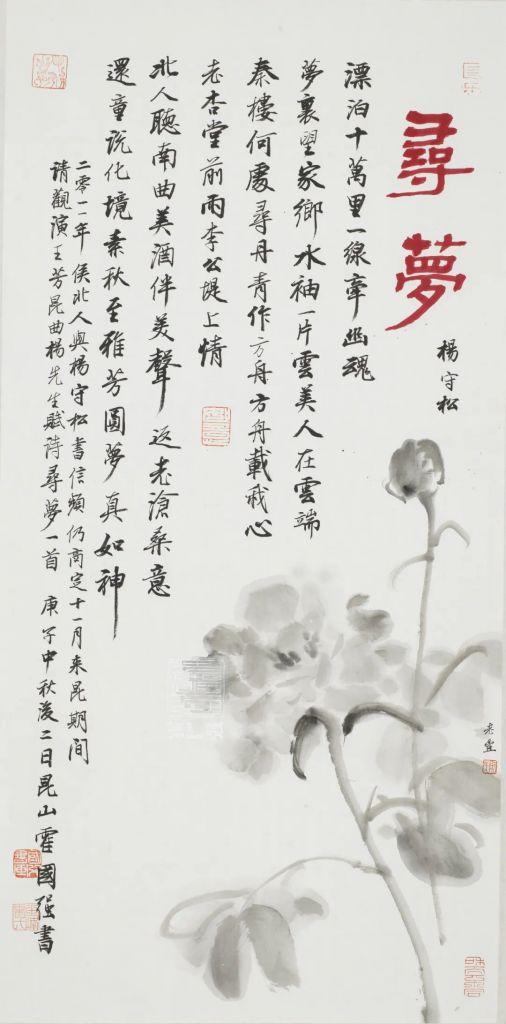 尋夢
楊守松
漂泊十萬里一線牽幽魂
夢裏望家鄉水袖一片雲美人在雲端
秦樓何處尋丹青作方舟方舟載我心
老杏堂前雨李公堤上情
北人聽南曲美酒伴美聲返老滄桑意
還童說化境素秋至雅芳圓夢真如神
二零一一年侯北人與楊守松書信頻仍商定十一月来昆期间
请觀演王芳昆曲楊先生賦诗尋夢一首 庚子中秋後二日昆山霍國强書